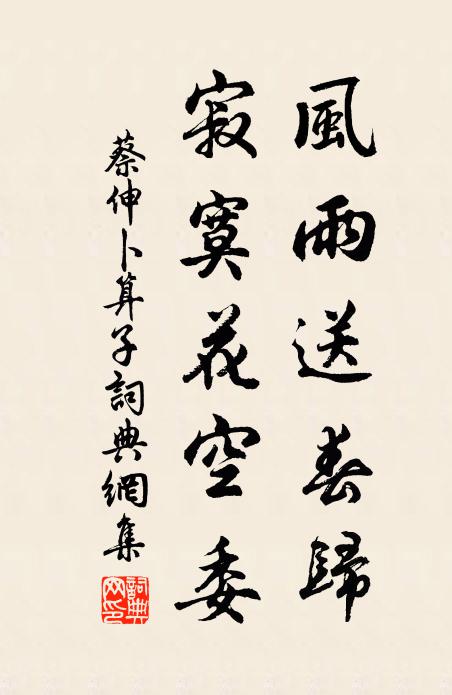 風雨送春歸
寂寞花空委
蔡伸卜算子詞典網集
詞典網印